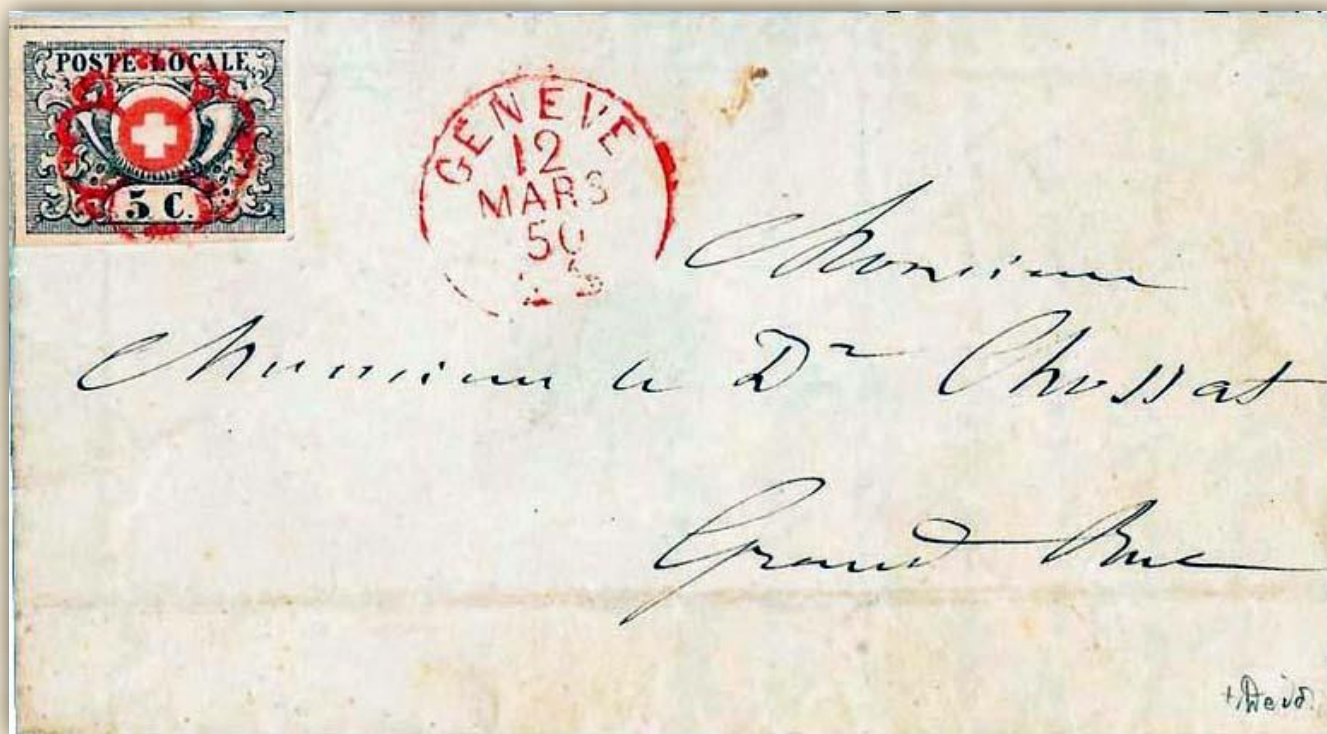 POSTE LOCALE
5 C.
GENEVE
12
MARS
50
Monsieur
Monsieur le Dr Chossat
Grand Rue